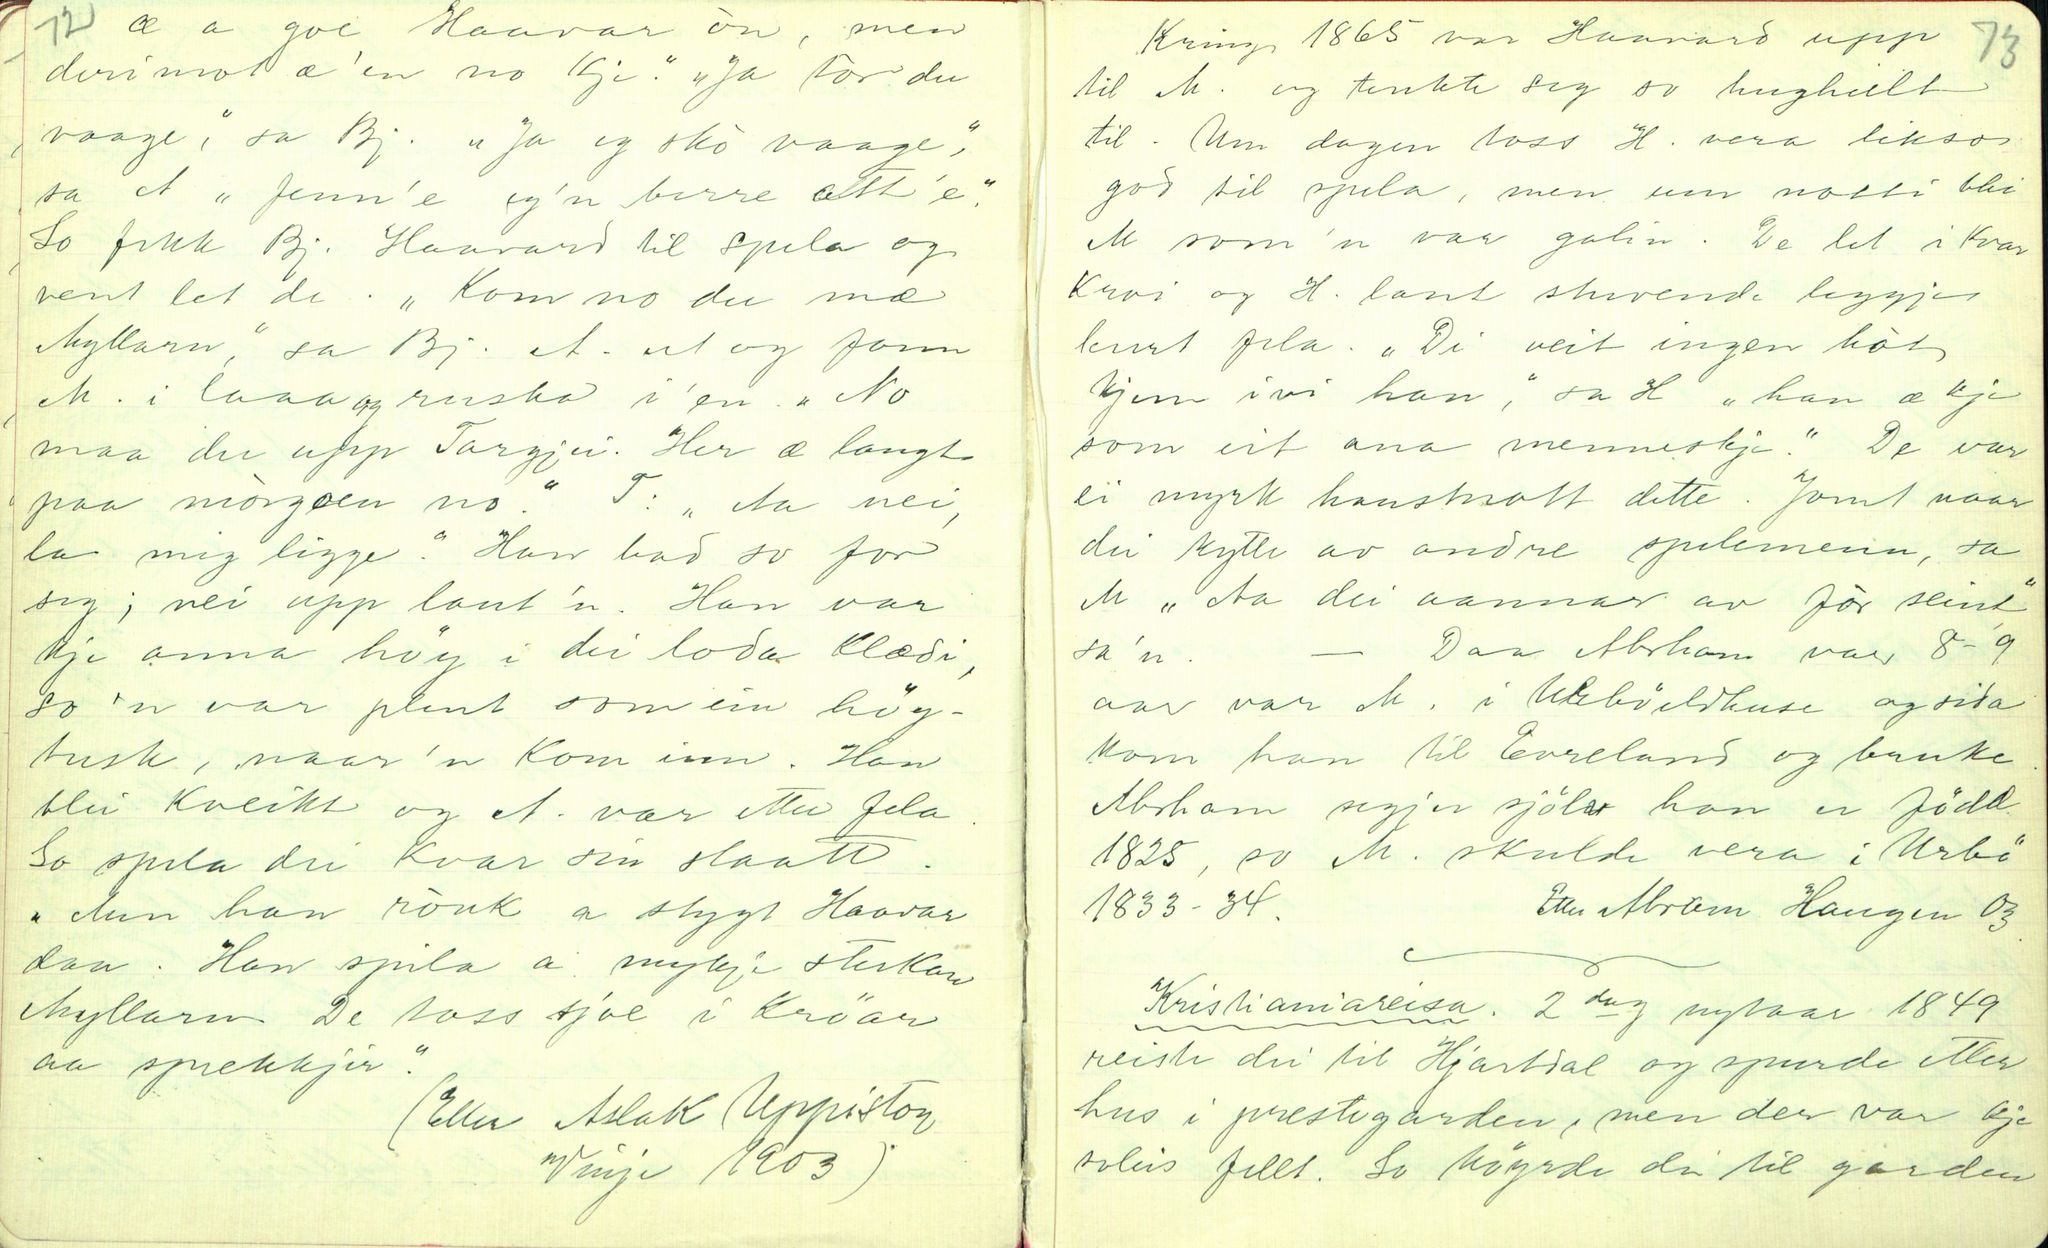 72
æ a goe Haavar òn, men
derimot æ'en no kje." "Ja tòr du
vaage," sa Bj. "Ja eg skò vaage,"
sa A "fenn'e eg'n berre ett'e".
So fekk Bj. Haavard til spela og
vent let de. "Kom no du mæ
Myllarn," sa Bj. A. ut og fann
M. i laaa og ruska i'en. "No
maa du upp Targjei. Her æ langt
paa mòrgoen no." T: "Aa nei,
la mig ligge." Han bad so for
seg; nei upp laut'n. Han var
kje anna höy i dei lodæ klædi,
so'n var plent som ein höy-
tusk, naar'n kom inn. Han
blei kveikt og A. var etter fela.
So spela dei kvar sin slaatt.
"Men han rönk a stygt Haavar
daa. Han spela a mykje sterkar
Myllarn De toss sjoe i kröar
aa sprekkjir."
(Etter Aslak Uppistog
Vinje 1903)
73
Kring 1865 var Haavard upp
til M. og tenkte seg so hugheilt
til. Um dagen toss H. vera likso
god til spela, men um notti blei
M som'n var galin. De let i kvar
kroi og H. laut stivende leggje
burt fela. "Di veit ingen hòt
kjem ivi han," sa H "han æ kje
som eit ana menneskje." De var
ei myrk haustnott dette. Jamt naar
dei kytte av andre spelemenn, sa
M "Aa dei aannar av fòr seint"
sa'n. — Daa Abrham var 8-9
aar var M. i Urbö eldhuse og sida
kom han til Evreland og bruke.
Abrham segjer sjölv han er född
1825, so M. skulde vera i Urbö
1833-34. Etter Abram Haugen 03.
Kristianiareisa. 2 dag nyaar 1849
reiste dei til Hjartdal og spurde etter
hus i prestegarden, men der var kje
soleis fellt. So köyrde dei til garden